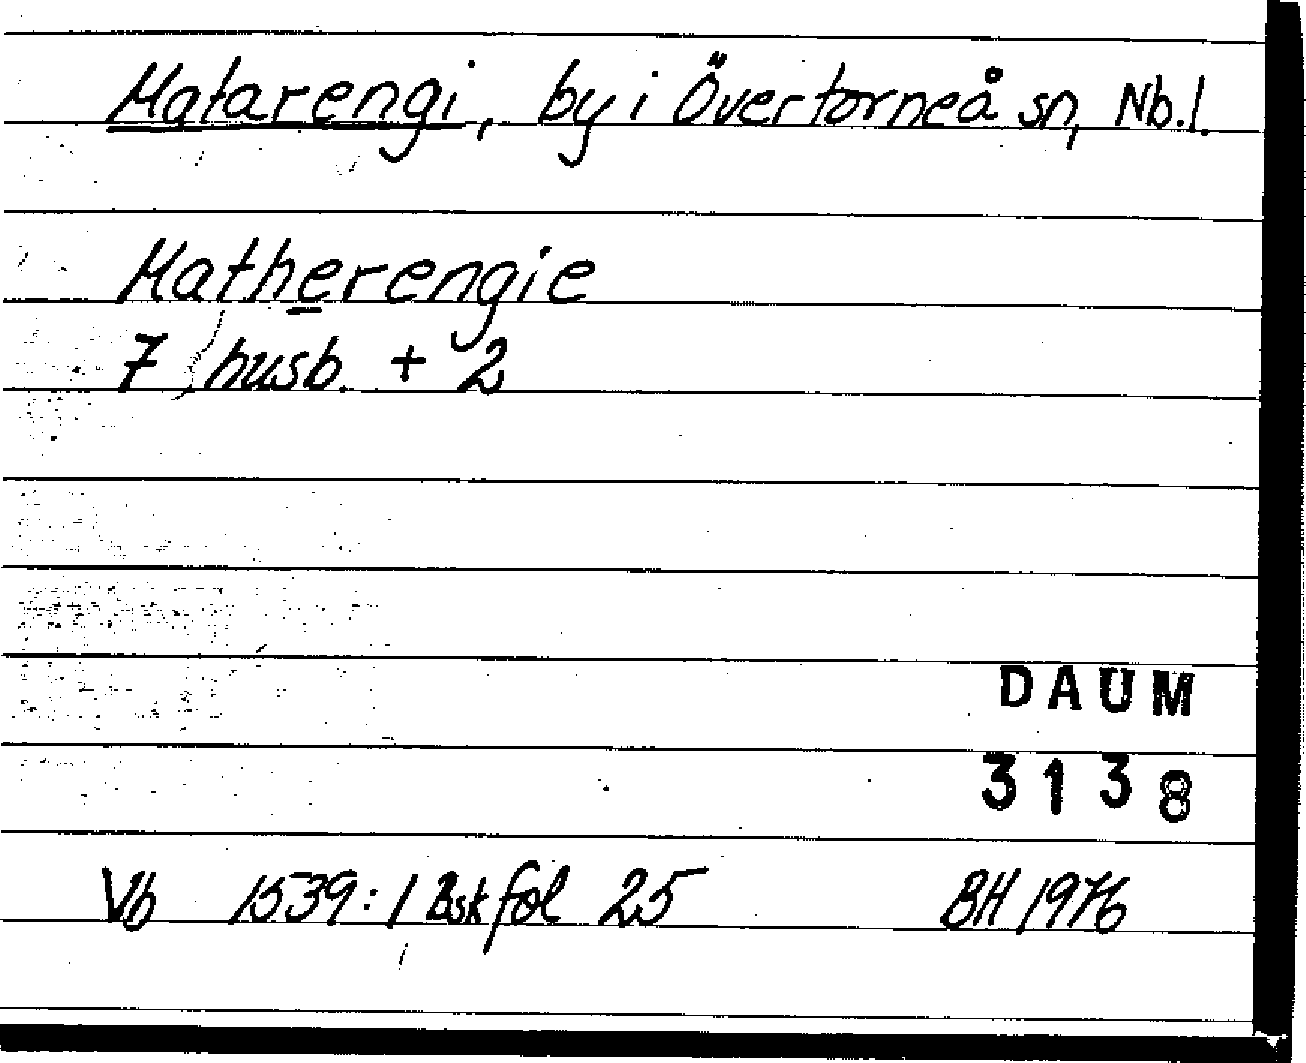 Matarengi, by i Övertorneå sn, Nb.l.
Matherengie
7 husb. + 2
DAUM
3138
Vb 1539:1 Bskfol 25 BH 1976